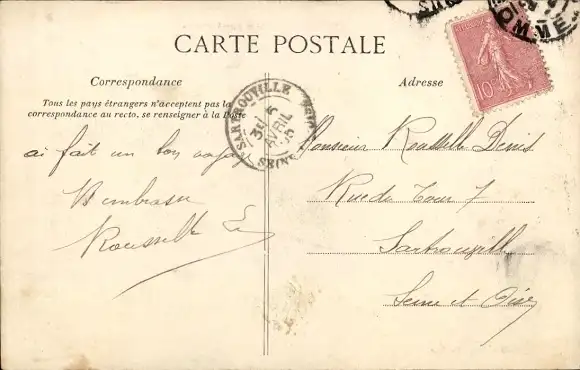 CARTE POSTALE
Correspondance
Tous les pays étrangers n'acceptent pas la
correspondance au recto, se renseigner à la Poste
Adresse
10
OMME
SARTROUVILLE
6
AVRIL
05
SEINE
ai fait un bon voyage
Rousselle
Monsieur Rousselle Denis
Rue de Tour 7
Sartrouville
Seine et Oise